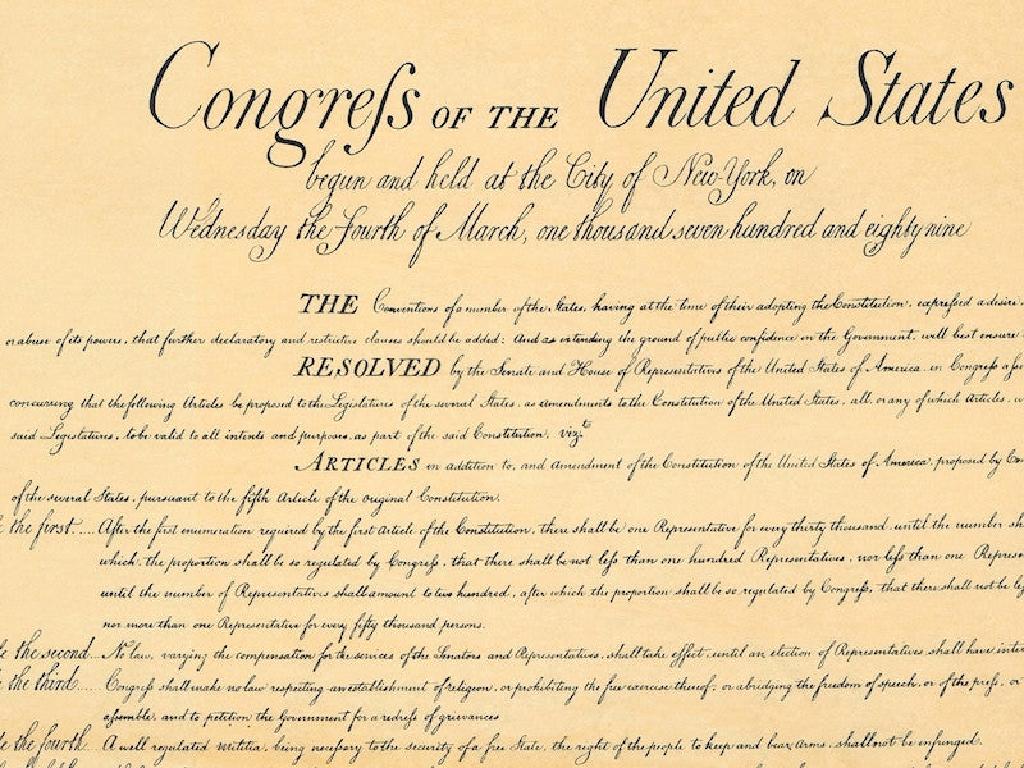 Congreſs OF THE United States
begun and held at the City of New-York, on
Wednesday the fourth of March, one thousand seven hundred and eighty nine
THE Conventions of a number of the States, having at the time of their adopting the Constitution, expreſsed a desire,
or abuse of its powers, that further declaratory and restrictive clauses should be added: And as extending the ground of public confidence in the Government, will best ensure
RESOLVED by the Senate and House of Representatives of the United States of America, in Congreſs
concurring that the following Articles be proposed to the Legislatures of the several States, as amendments to the Constitution of the United States, all, or any of which Articles,
said Legislatures, to be valid to all intents and purposes, as part of the said Constitution, vizt.
ARTICLES in addition to, and amendment of the Constitution of the United States of America, proposed by
of the several States, pursuant to the fifth Article of the original Constitution.
the first .... After the first enumeration required by the first Article of the Constitution, there shall be one Representative for every thirty thousand, until the number
which, the proportion shall be so regulated by Congreſs, that there shall be not leſs than one hundred Representatives, nor leſs than one
until the number of Representatives shall amount to two hundred, after which the proportion shall be so regulated by Congreſs, that there shall not be
nor more than one Representative for every fifty thousand persons.
the second... No law, varying the compensation for the services of the Senators and Representatives, shall take effect, until an election of Representatives shall have
the third..... Congreſs shall make no law respecting an establishment of religion, or prohibiting the free exercise thereof; or abridging the freedom of speech, or of the preſs, or
aſsemble, and to petition the Government for a redreſs of grievances
the fourth.. A well regulated militia, being neceſsary to the security of a free State, the right of the people to keep and bear arms, shall not be infringed.